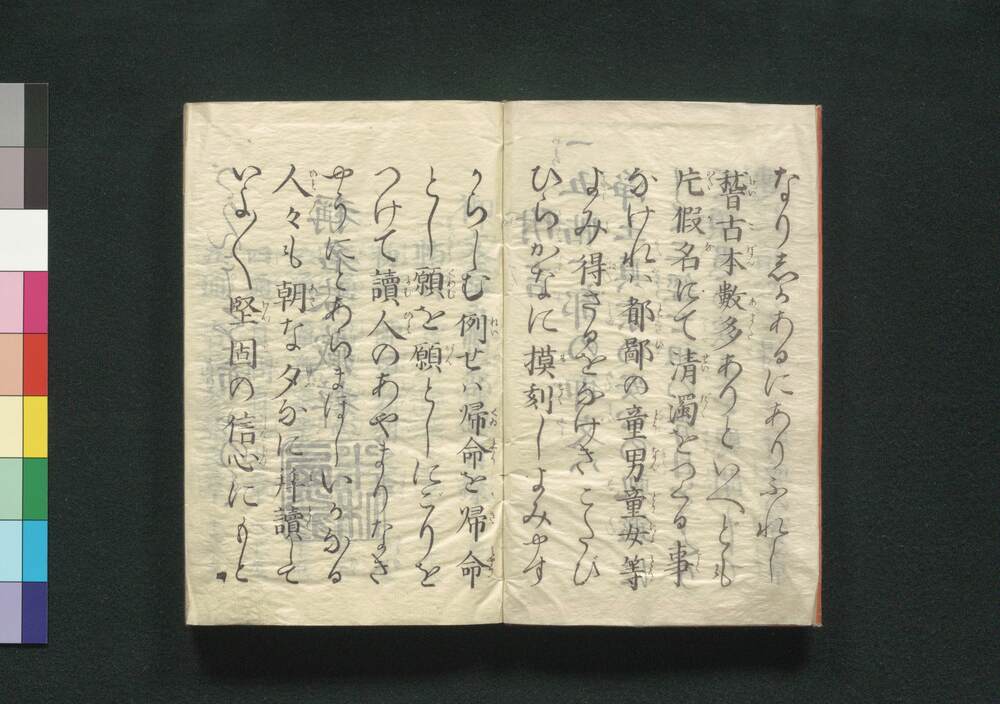 なりしかあるにありふれし
稽古本數多ありといへども
片假名にて清濁をつくる事
なけれハ都鄙の童男童女等
よみ得さるをなげきこたび
ひらかなに摸刻しよみやす
からしむ例せハ帰命を帰命
とし願を願としにごりを
つけて讀人のあやまりなき
やうにとあいまほしいかなる
人々も朝な夕なに拜讀して
いよ〱堅固の信心にもと